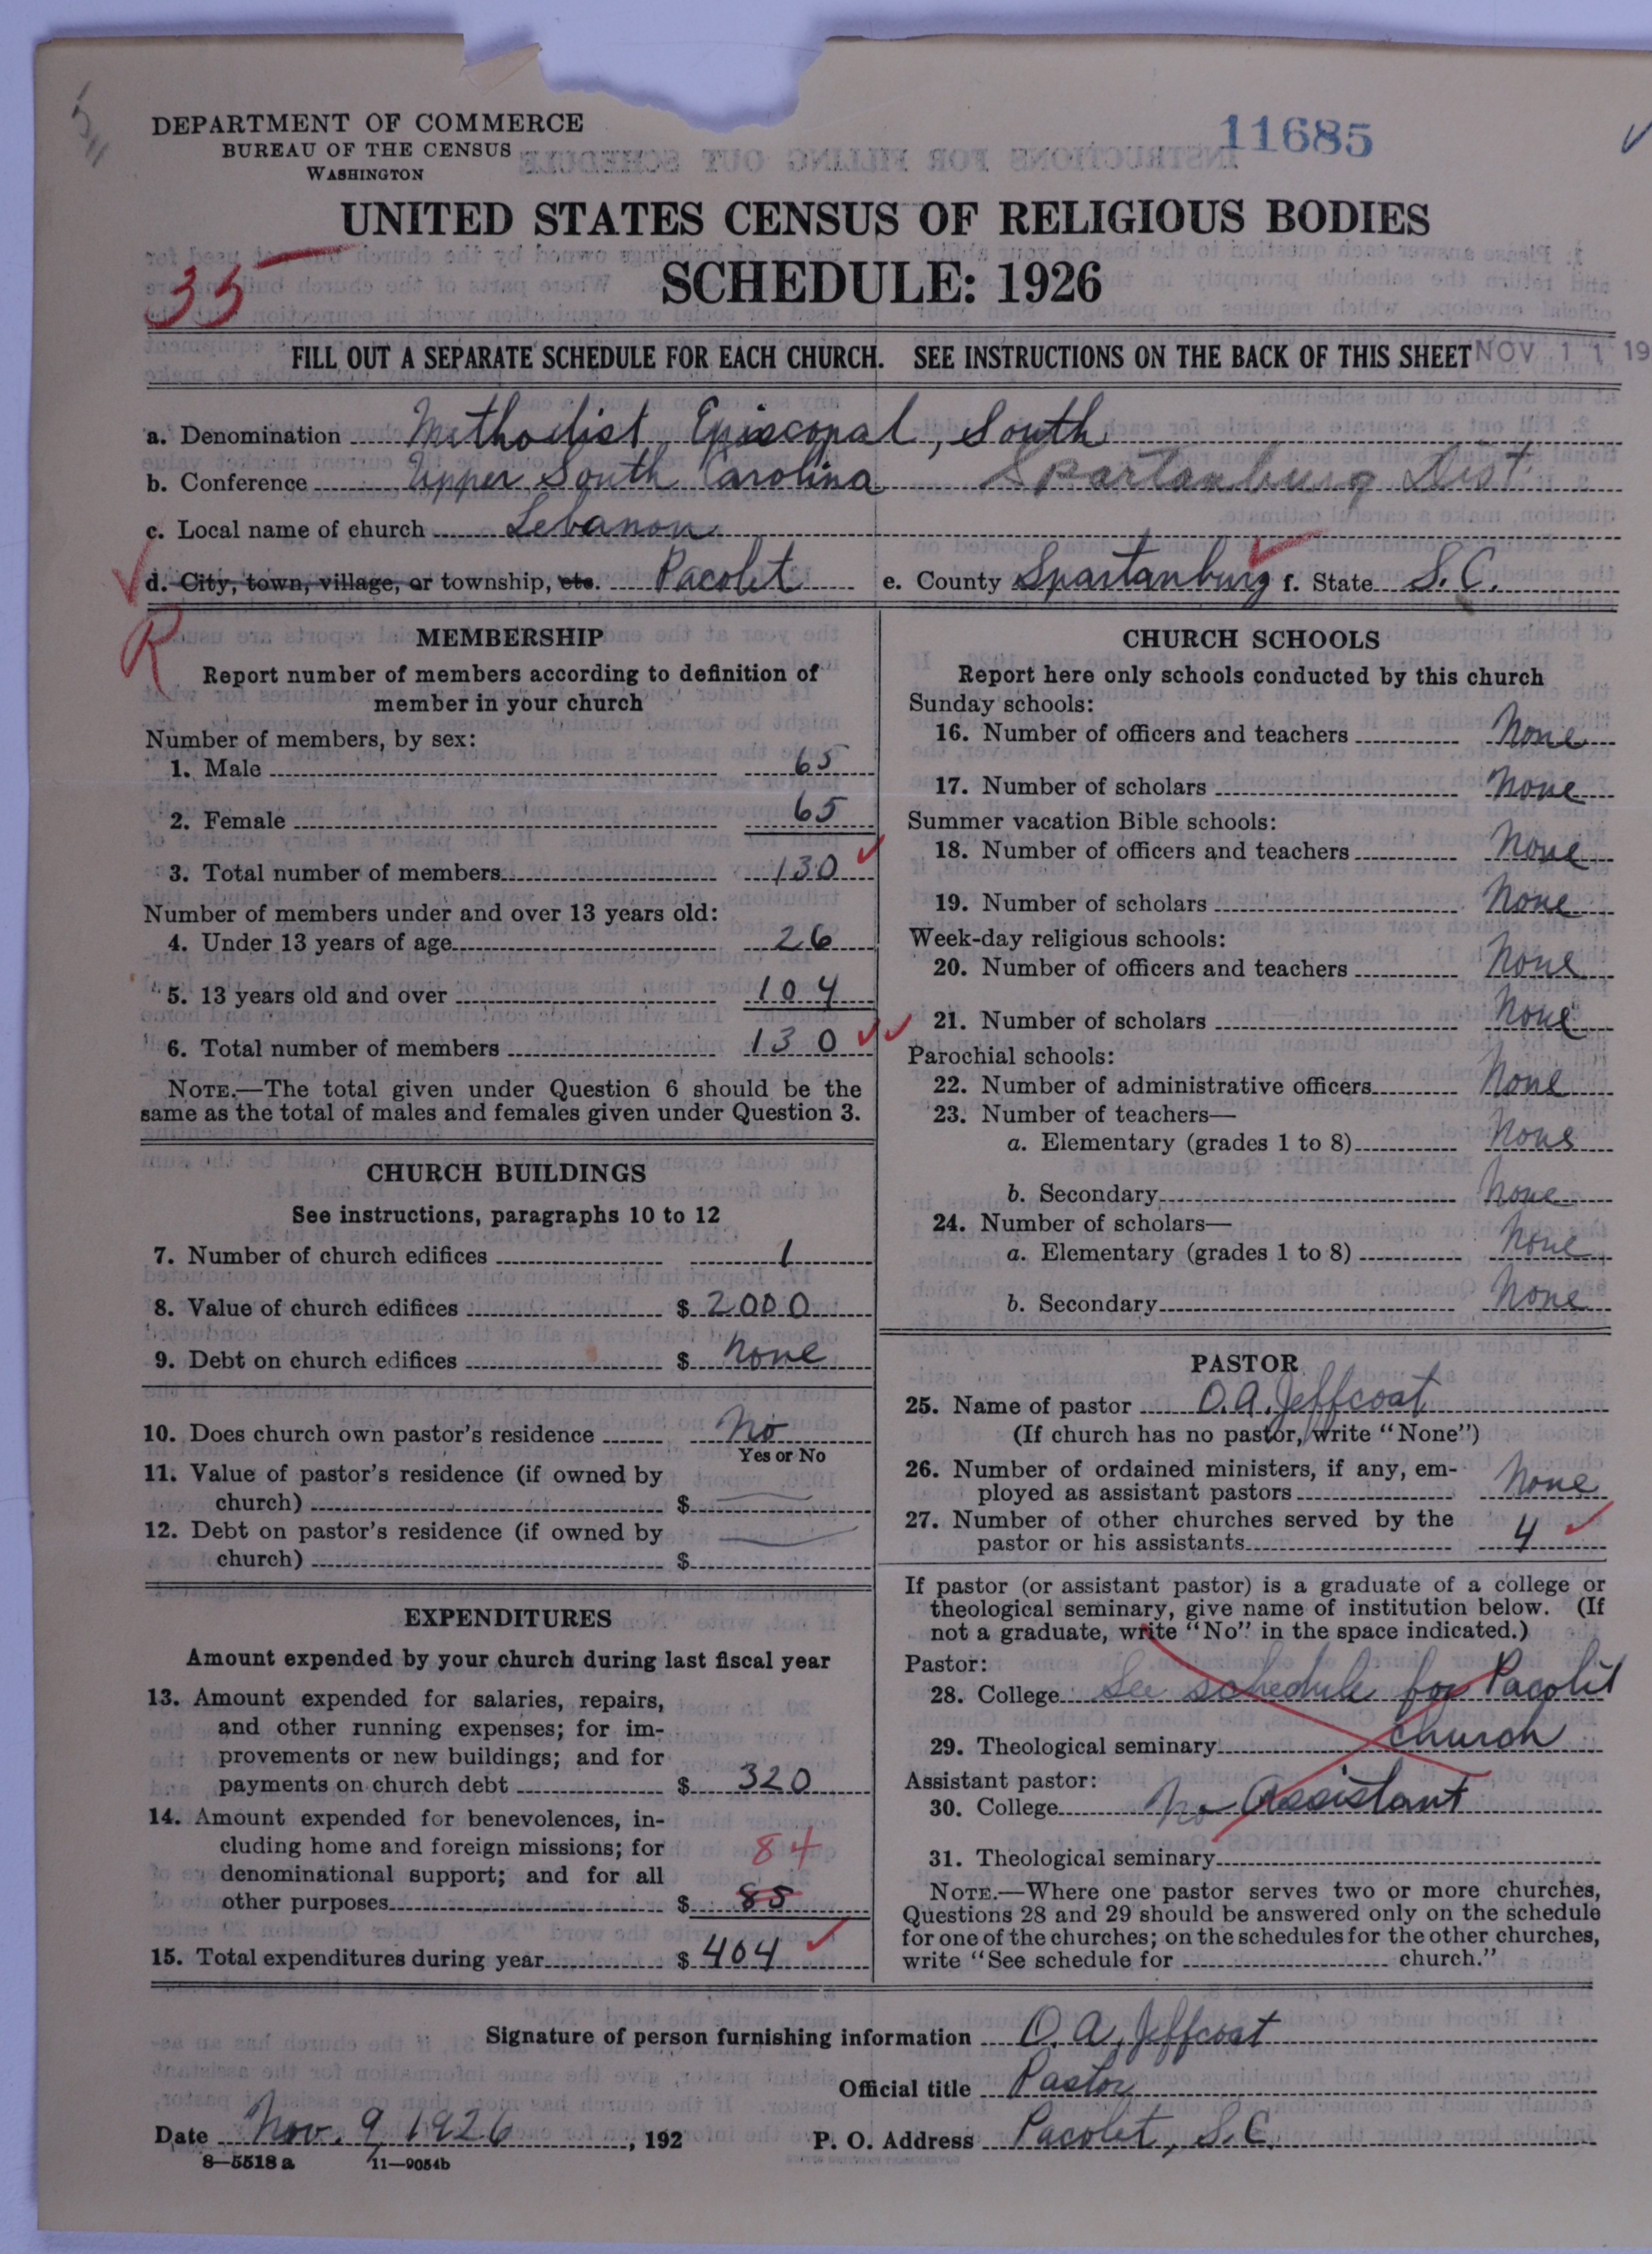 DEPARTMENT OF COMMERCE
BUREAU OF THE CENSUS
WASHINGTON
11685
UNITED STATES CENSUS OF RELIGIOUS BODIES
35
SCHEDULE: 1926
FILL OUT A SEPARATE SCHEDULE FOR EACH CHURCH. SEE INSTRUCTIONS ON THE BACK OF THIS SHEET NOV 11 19
a. Denomination Methodist Episcopal, South
b. Conference Upper South Carolina Spartanburg Dist
c. Local name of church Lebanon
d. City, town, village, or township, etc. Pacolet e. County Spartanburg f. State S.C.
R
MEMBERSHIP
Report number of members according to definition of
member in your church
Number of members, by sex:
1. Male 65
2. Female 65
3. Total number of members 130
Number of members under and over 13 years old:
4. Under 13 years of age 26
5. 13 years old and over 104
6. Total number of members 130
NOTE.—The total given under Question 6 should be the
same as the total of males and females given under Question 3.
CHURCH BUILDINGS
See instructions, paragraphs 10 to 12
7. Number of church edifices 1
8. Value of church edifices $ 2000
9. Debt on church edifices $ None
10. Does church own pastor's residence No
Yes or No
11. Value of pastor's residence (if owned by
church) $
12. Debt on pastor's residence (if owned by
church) $
EXPENDITURES
Amount expended by your church during last fiscal year
13. Amount expended for salaries, repairs,
and other running expenses; for im-
provements or new buildings; and for
payments on church debt $ 320
14. Amount expended for benevolences, in-
cluding home and foreign missions; for
denominational support; and for all
84
other purposes $ 85
15. Total expenditures during year $ 404
CHURCH SCHOOLS
Report here only schools conducted by this church
Sunday schools:
16. Number of officers and teachers None
17. Number of scholars None
Summer vacation Bible schools:
18. Number of officers and teachers None
19. Number of scholars None
Week-day religious schools:
20. Number of officers and teachers None
21. Number of scholars None
Parochial schools:
22. Number of administrative officers None
23. Number of teachers—
a. Elementary (grades 1 to 8) None
b. Secondary None
24. Number of scholars—
a. Elementary (grades 1 to 8) None
b. Secondary None
PASTOR
25. Name of pastor O.A. Jeffcoat
(If church has no pastor, write "None")
26. Number of ordained ministers, if any, em-
ployed as assistant pastors None
27. Number of other churches served by the
pastor or his assistants 4
If pastor (or assistant pastor) is a graduate of a college or
theological seminary, give name of institution below. (If
not a graduate, write "No" in the space indicated.)
Pastor:
28. College See schedule for Pacolet
29. Theological seminary church
Assistant pastor:
30. College No Assistant
31. Theological seminary
NOTE.—Where one pastor serves two or more churches,
Questions 28 and 29 should be answered only on the schedule
for one of the churches; on the schedules for the other churches,
write "See schedule for church."
Signature of person furnishing information O. A. Jeffcoat
Official title Pastor
Date Nov. 9, 1926, 192 P. O. Address Pacolet, S.C.
8—5518 a 11—9054b